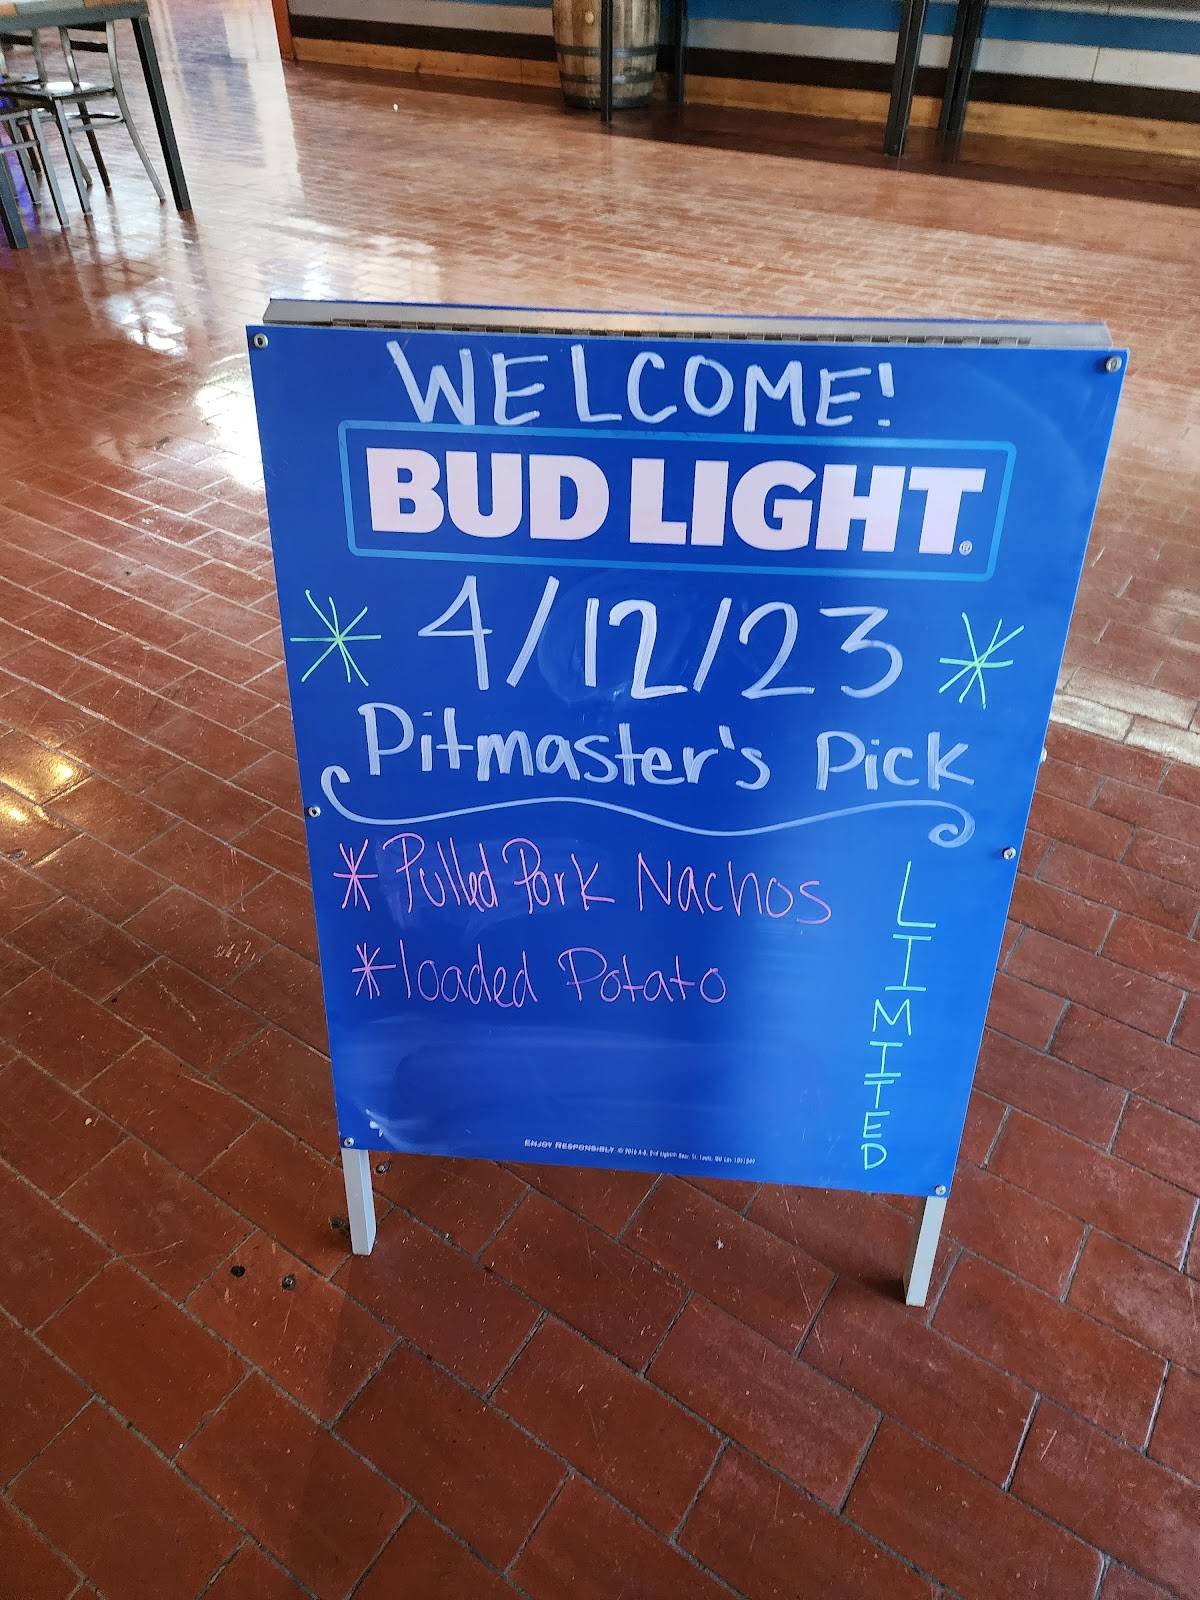 WELCOME!
BUD LIGHT®
4/12/23
Pitmaster's Pick
* Pulled Pork Nachos
* loaded Potato
LIMITED
ENJOY RESPONSIBLY